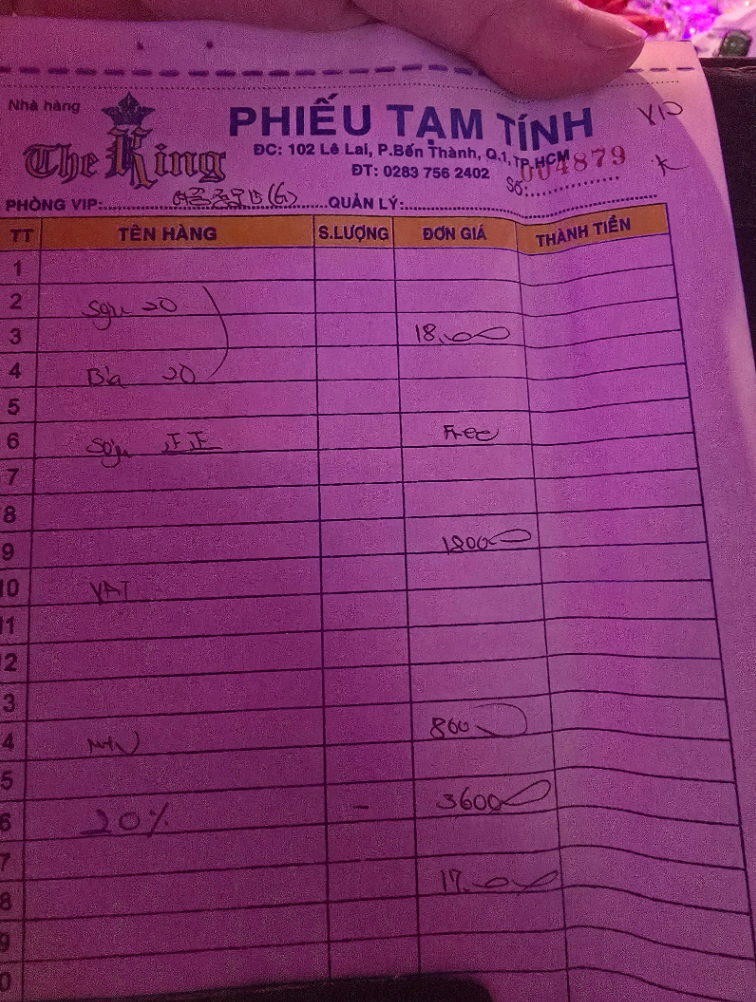 Nhà hàng
The King
PHIẾU TẠM TÍNH
VIP
ĐC: 102 Lê Lai, P.Bến Thành, Q.1, TP.HCM
ĐT: 0283 756 2402
Số: 004879
K
PHÒNG VIP: (G) QUẢN LÝ:
TT TÊN HÀNG S.LƯỢNG ĐƠN GIÁ THÀNH TIỀN
1
2 Soju 20
3 18.
4 Bia 20
5
6 Soju 正正 Free
7
8
9 1800
10 VAT
11
2
3
4 800
5
6 20% - 3600
7
8 17.
9
0